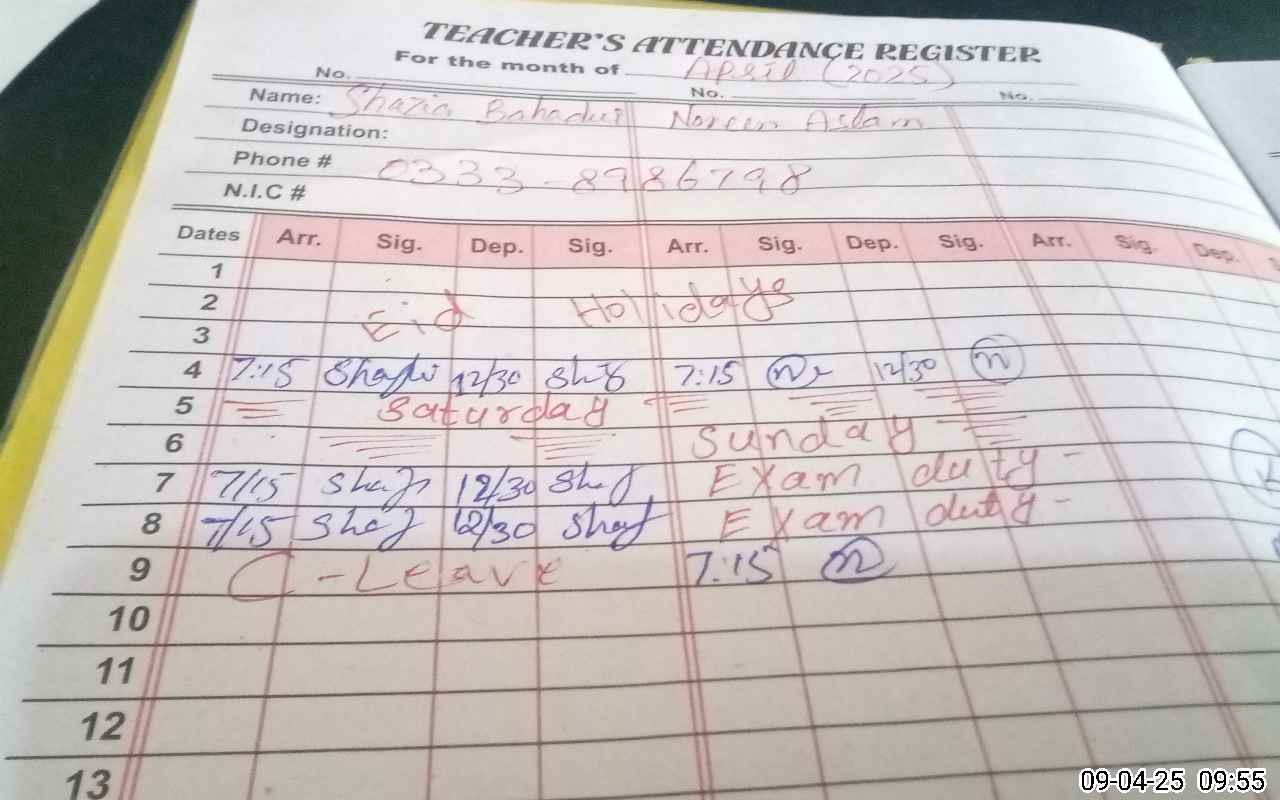 TEACHER'S ATTENDANCE REGISTER
For the month of April (2025)
No. No. No.
Name: Shazia Bahadur Noreen Aslam
Designation:
Phone # 0333-8986798
N.I.C #
Dates Arr. Sig. Dep. Sig. Arr. Sig. Dep. Sig. Arr. Sig. Dep.
1
2 Eid Hollidays
3
4 7:15 12/30 7:15 12/30 n
5 Saturday
6 Sunday
7 7/15 Shaf 12/30 Shaf Exam duty -
8 7/15 Shaf 12/30 Shaf Exam duty -
9 C-Leave 7:15 n
10
11
12
13
09-04-25 09:55